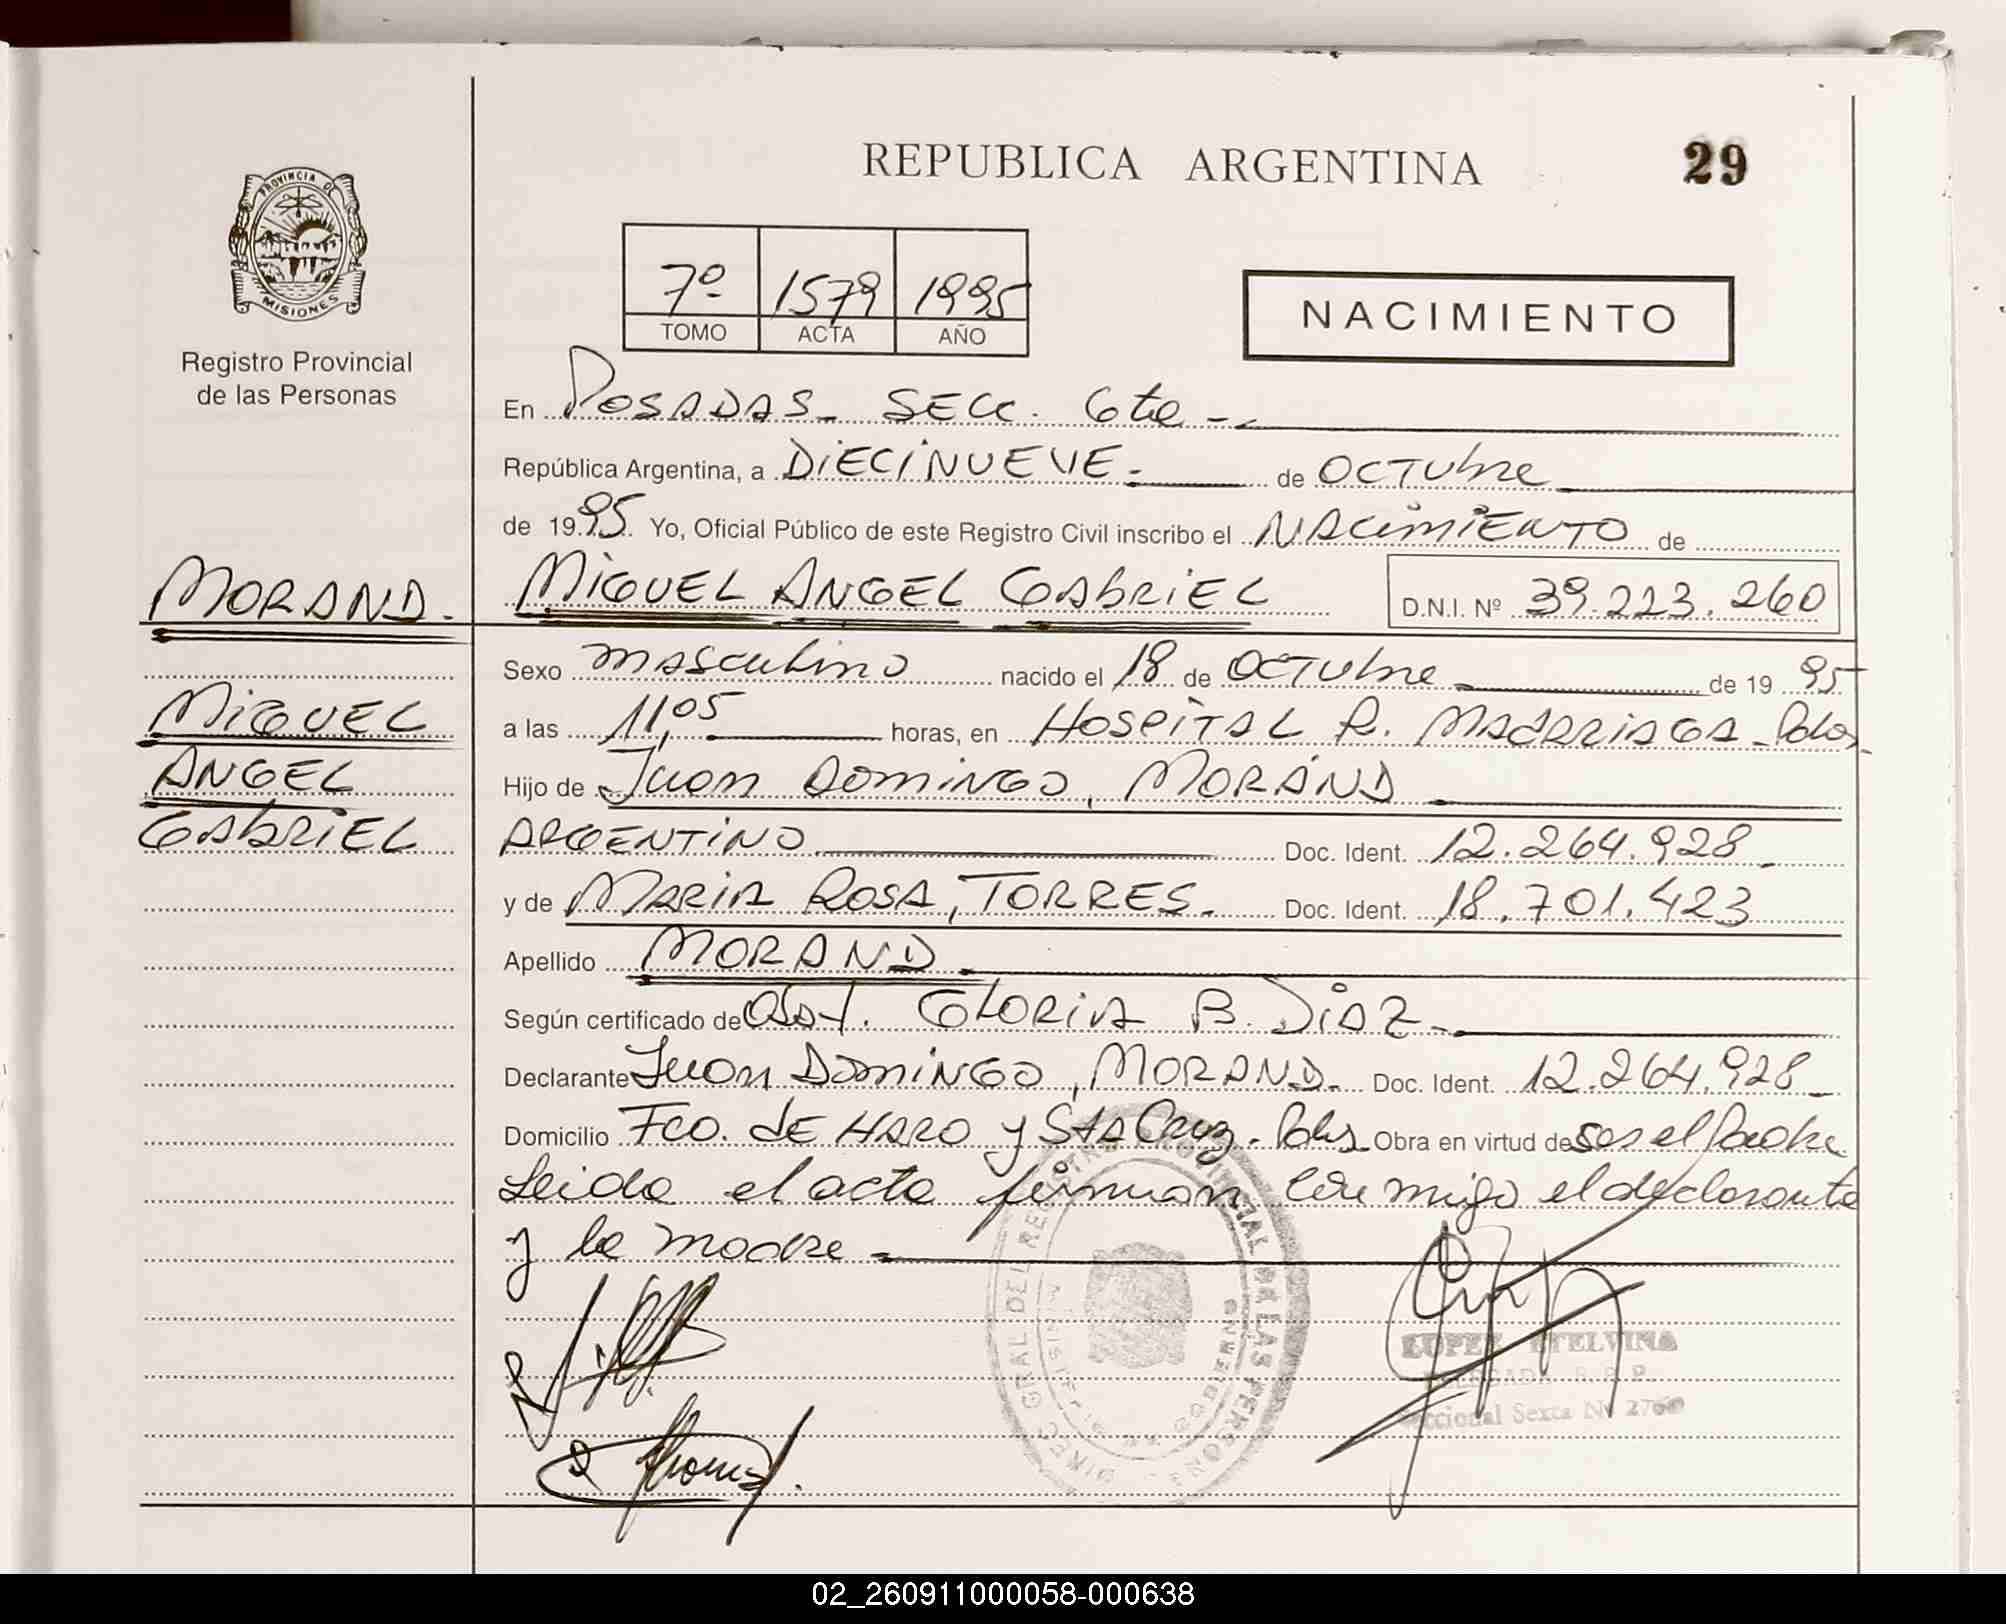 REPUBLICA ARGENTINA
29
PROVINCIA DE
MISIONES
Registro Provincial
de las Personas
7º 1579 1995
TOMO ACTA AÑO
NACIMIENTO
En POSADAS - SECC. 6ta -
República Argentina, a DIECINUEVE - de OCTUbre
de 1995 Yo, Oficial Público de este Registro Civil inscribo el NACIMIENTO de
MORAND.
MIGUEL ANGEL GAbRIEL D.N.I. Nº 39.223.260
Sexo masculino nacido el 18 de OCTUbre de 19 95
MIGUEL
a las 11,05 horas, en HOSPITAL R. MADARIAGA - Pdas
ANGEL
Hijo de Juan DOMINGO, MORAND
GAbRIEL
ARGENTINO Doc. Ident. 12.264.928
y de MARIA ROSA, TORRES. Doc. Ident. 18.701.423
Apellido MORAND
Según certificado de Obst. GLORIA B. DIAZ
Declarante Juan DOMINGO, MORAND. Doc. Ident. 12.264.928
Domicilio Fco. dE HARO y Sta Cruz - Pdas Obra en virtud de ser el padre
Leida el acta firman conmigo el declarante
y la madre
LOPEZ ETELVINA
DELEGADA R. P. P.
Seccional Sexta Nº 2760
02_260911000058-000638